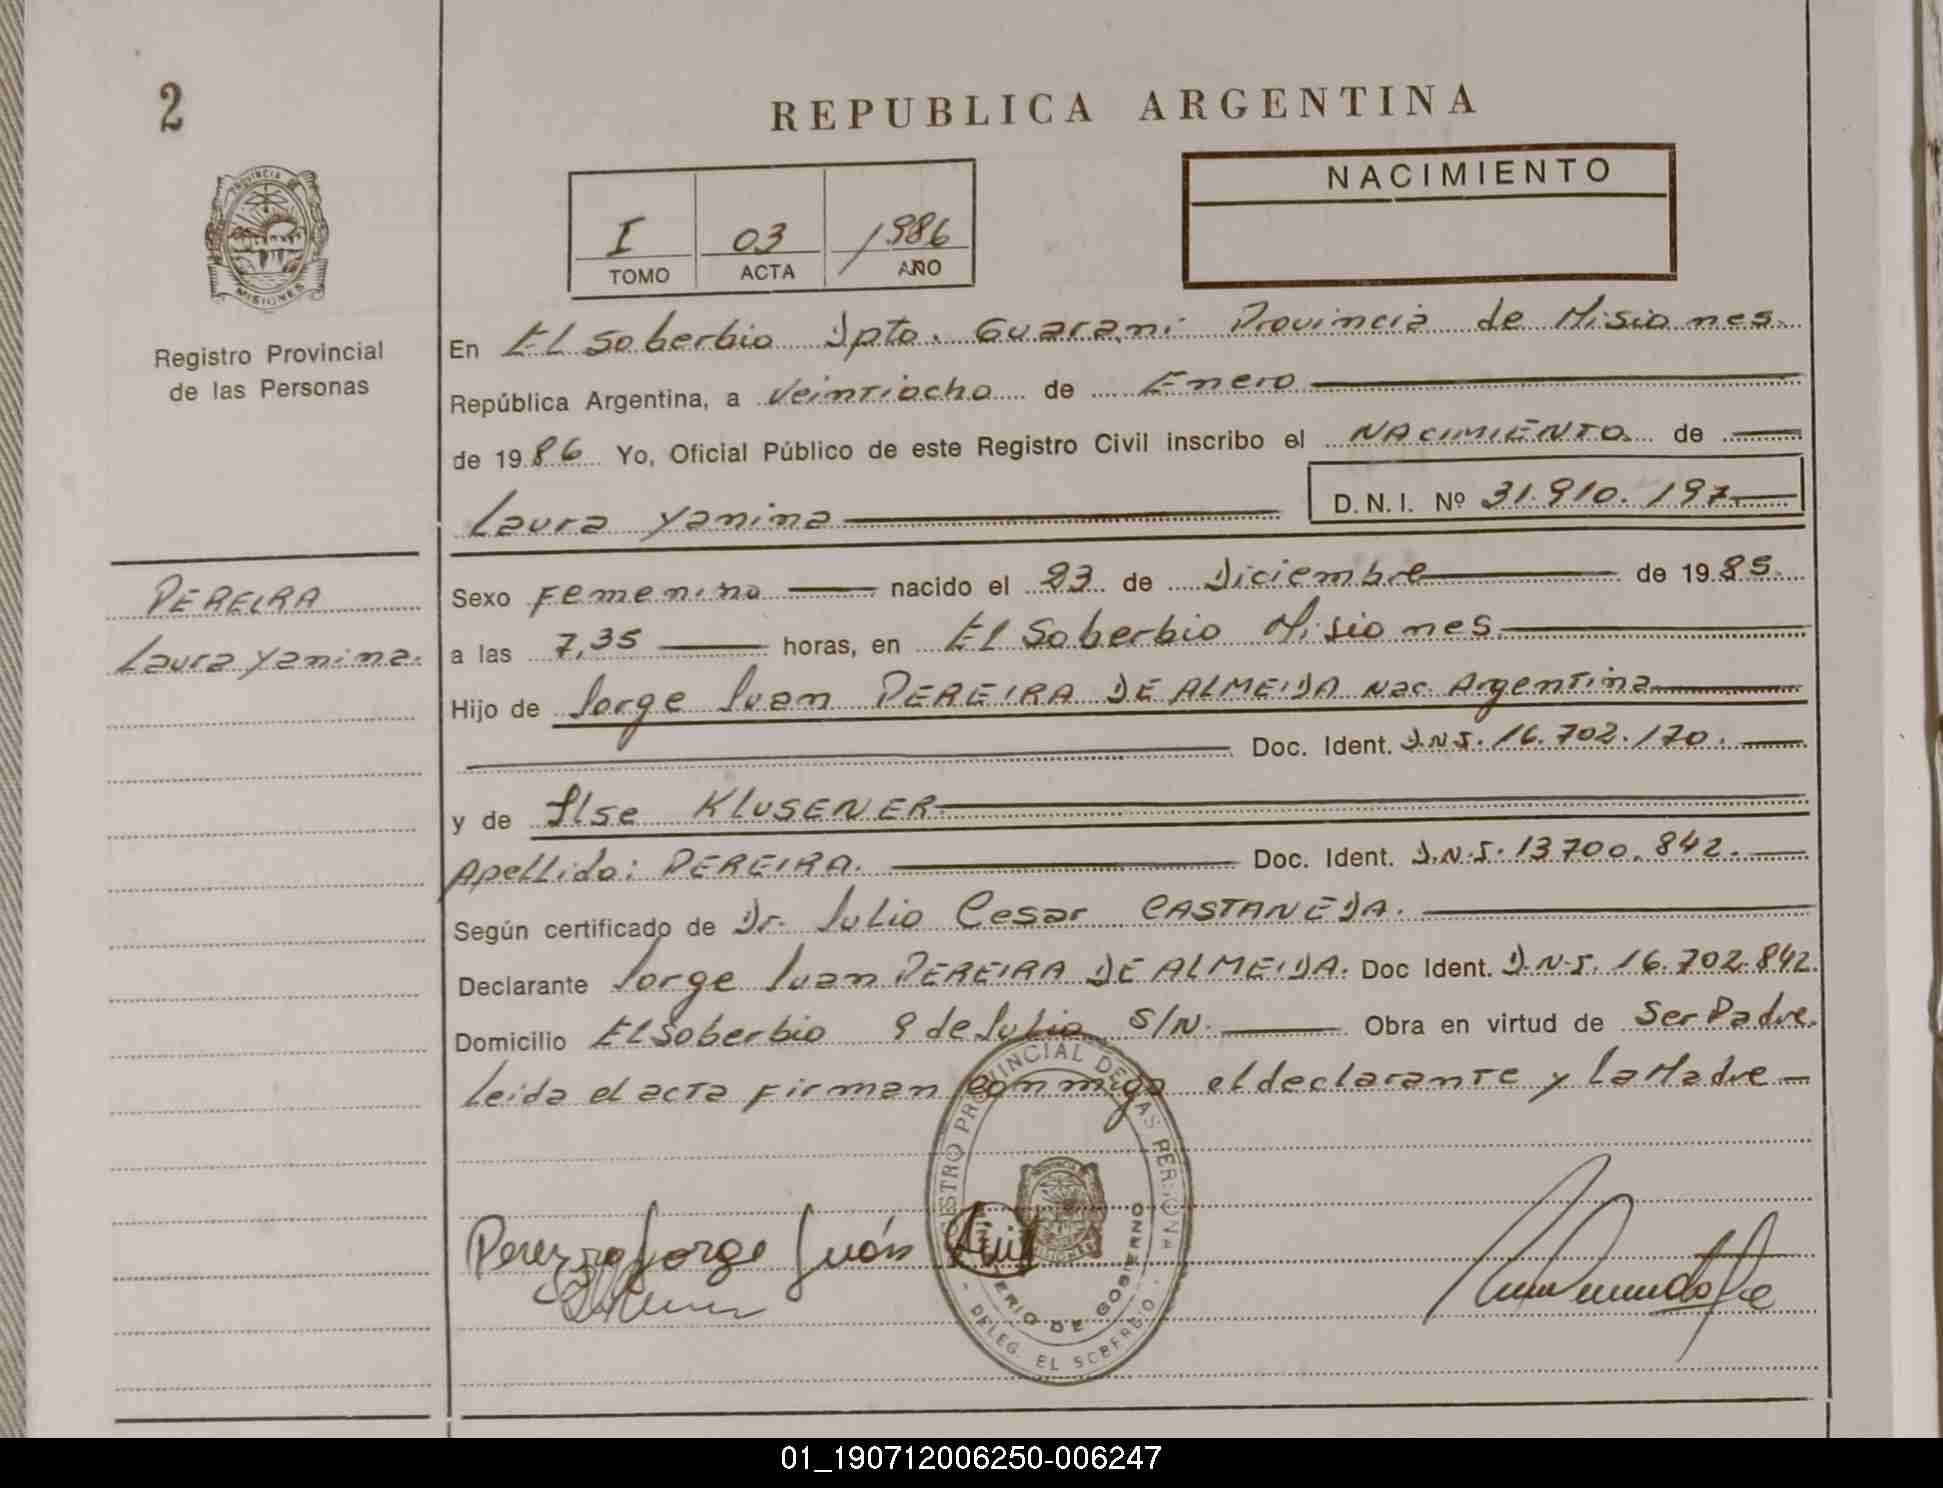 2
REPUBLICA ARGENTINA
PROVINCIA DE
MISIONES
Registro Provincial
de las Personas
I 03 1986
TOMO ACTA AÑO
NACIMIENTO
En El Soberbio Dpto. Guarani Provincia de Misiones.
República Argentina, a Veintiocho de Enero
de 1986 Yo, Oficial Público de este Registro Civil inscribo el NACIMIENTO de
Laura Yanina D.N.I. Nº 31.910.197
PEREIRA
Laura Yanina.
Sexo Femenino nacido el 23 de Diciembre de 1985.
a las 7,35 horas, en El Soberbio Misiones.
Hijo de Jorge Juan PEREIRA DE ALMEIDA Nac. Argentina
Doc. Ident. D.N.I. 16.702.170.
y de Ilse KLUSENER
Apellido: PEREIRA. Doc. Ident. D.N.I. 13700.842.
Según certificado de Dr. Julio Cesar CASTANEDA.
Declarante Jorge Juan PEREIRA DE ALMEIDA. Doc Ident. D.N.I. 16.702.842.
Domicilio El Soberbio 9 de Julio S/N. Obra en virtud de Ser Padre.
Leida el acta Firman conmigo el declarante y La Madre
ISTRO PROVINCIAL DE LAS PERSONA
ERIO DE GOBIERNO
DELEG. EL SOBERBIO
Pereira Jorge Juán
01_190712006250-006247